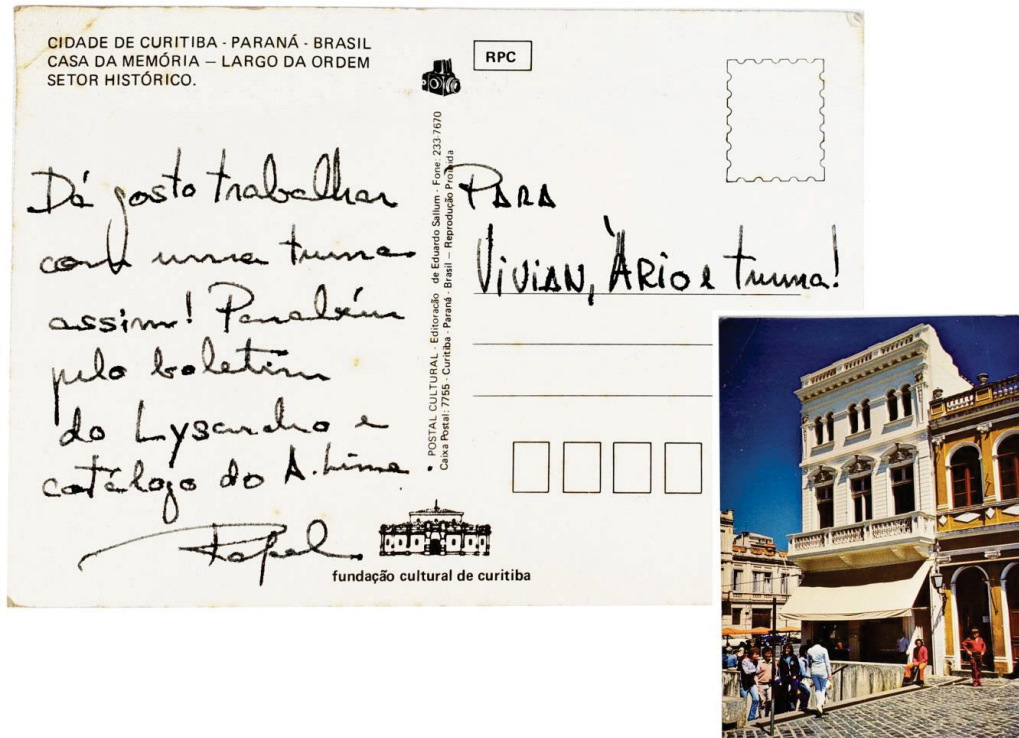 CIDADE DE CURITIBA - PARANÁ - BRASIL
CASA DA MEMÓRIA — LARGO DA ORDEM
SETOR HISTÓRICO.
RPC
Dá gosto trabalhar
com uma turma
assim! Parabéns
pelo boletim
do Lysandro e
catálogo do A. Lima.
Rafael
POSTAL CULTURAL - Editoração de Eduardo Sallum - Fone: 233-7670
Caixa Postal: 7755 - Curitiba - Paraná - Brasil — Reprodução Proibida
PARA
VIVIAN, ÁRIO e turma!
fundação cultural de curitiba